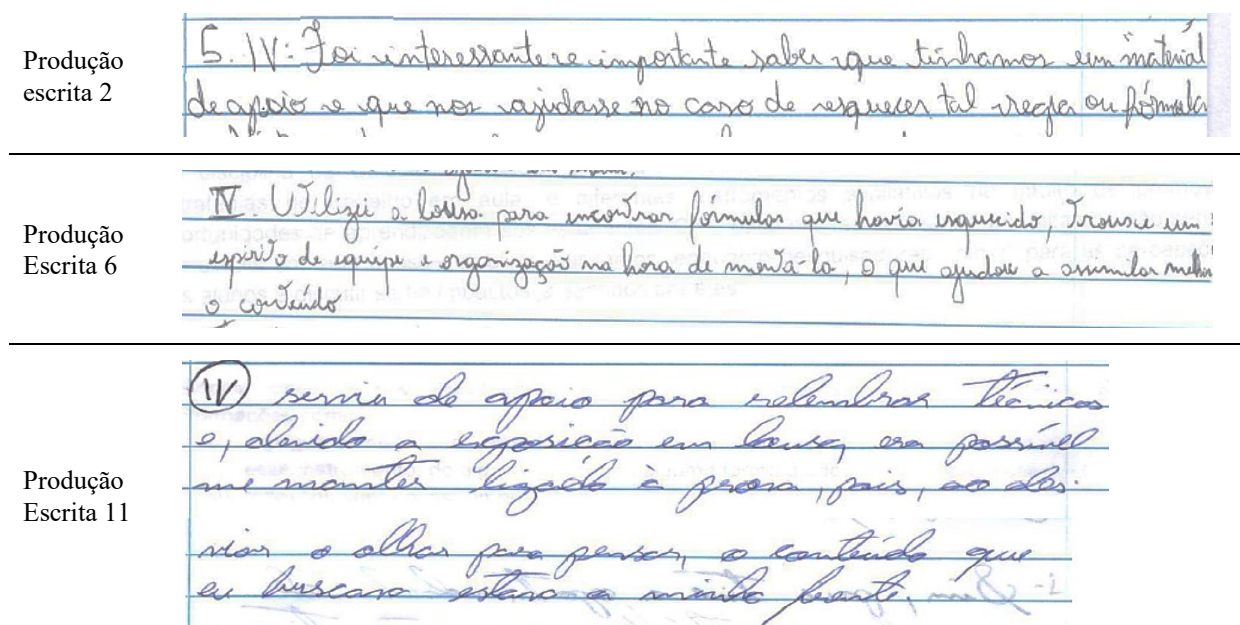 Produção
escrita 2
5. IV: Foi interessante e importante saber que tinhamos um material
de apoio e que nos ajudasse no caso de esquecer tal regra ou fórmula
Produção
Escrita 6
IV. Utilizei a lousa para encontrar formulas que havia esquecido, Trouxe um
espirito de equipe e organização na hora de montá-la, o que ajudou a assimilar melhor
o conteúdo
Produção
Escrita 11
IV serviu de apoio para relembrar técnicas
e, devido a exposição em lousa, era possível
me manter ligado a prova, pois, ao des-
viar o olhar para pensar, o conteúdo que
eu buscava estava a minha frente.